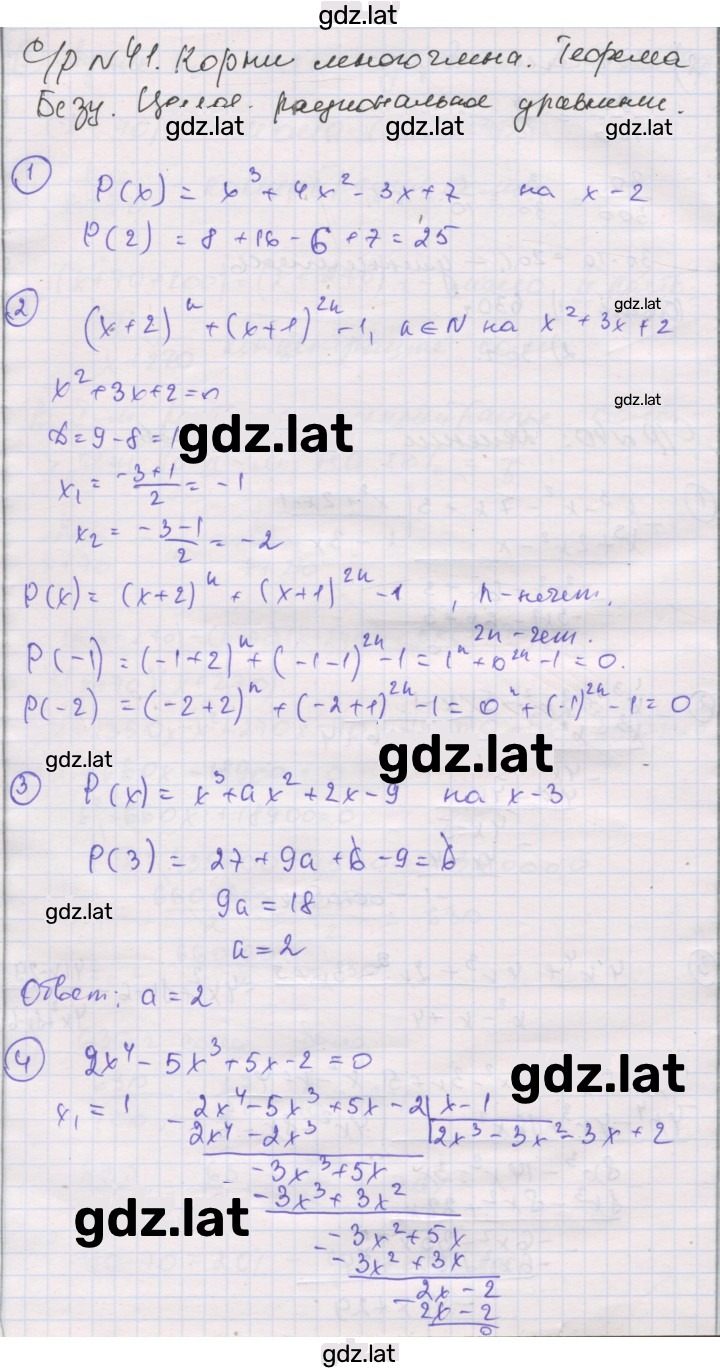 gdz.lat
С/р №41. Корни многочлена. Теорема
Безу. Целое. рациональное уравнение.
gdz.lat gdz.lat gdz.lat
1 P(x) = x³ + 4x² - 3x + 7 на x - 2
P(2) = 8 + 16 - 6 + 7 = 25
gdz.lat
2 (x+2)ⁿ + (x+1)²ⁿ - 1, n ∈ N на x² + 3x + 2
x² + 3x + 2 = 0
gdz.lat
D = 9 - 8 = 1
gdz.lat
x₁ = (-3+1)/2 = -1
x₂ = (-3-1)/2 = -2
P(x) = (x+2)ⁿ + (x+1)²ⁿ - 1 , n - нечет,
2n - чет.
P(-1) = (-1+2)ⁿ + (-1-1)²ⁿ - 1 = 1ⁿ + 0²ⁿ - 1 = 0.
P(-2) = (-2+2)ⁿ + (-2+1)²ⁿ - 1 = 0ⁿ + (-1)²ⁿ - 1 = 0
gdz.lat gdz.lat
3 P(x) = x³ + ax² + 2x - 9 на x - 3
P(3) = 27 + 9a + 6 - 9 = 6
gdz.lat
9a = 18
a = 2
Ответ: a = 2
4 2x⁴ - 5x³ + 5x - 2 = 0
gdz.lat
x₁ = 1 - 2x⁴ - 5x³ + 5x - 2 | x - 1
2x⁴ - 2x³ 2x³ - 3x² - 3x + 2
- -3x³ + 5x
-3x³ + 3x²
gdz.lat
- -3x² + 5x
-3x² + 3x
- 2x - 2
2x - 2
0
gdz.lat